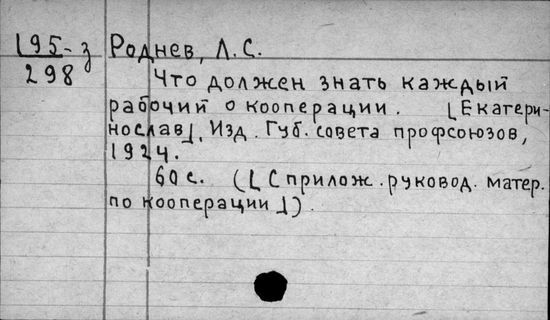 195-з Роднев, Л.С.
298
Что должен знать каждый
рабочий о кооперации. [Екатери-
нослав], Изд. Губ. совета профсоюзов,
1924.
60 с. ([С прилож. руковод. матер.
по кооперации]).